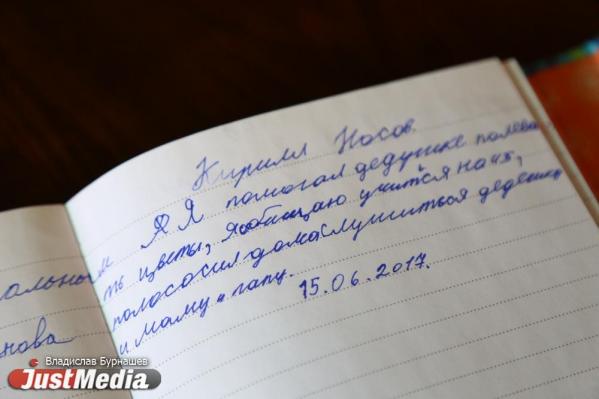 Кирилл Носов.
Я Я помогал дедушке полева
ть цветы, я обищаю учится на 5,
полососил дома слушиться дедешку
и маму и папу.
15.06.2017.
альным
нова
Владислав Бурнашев
JustMedia